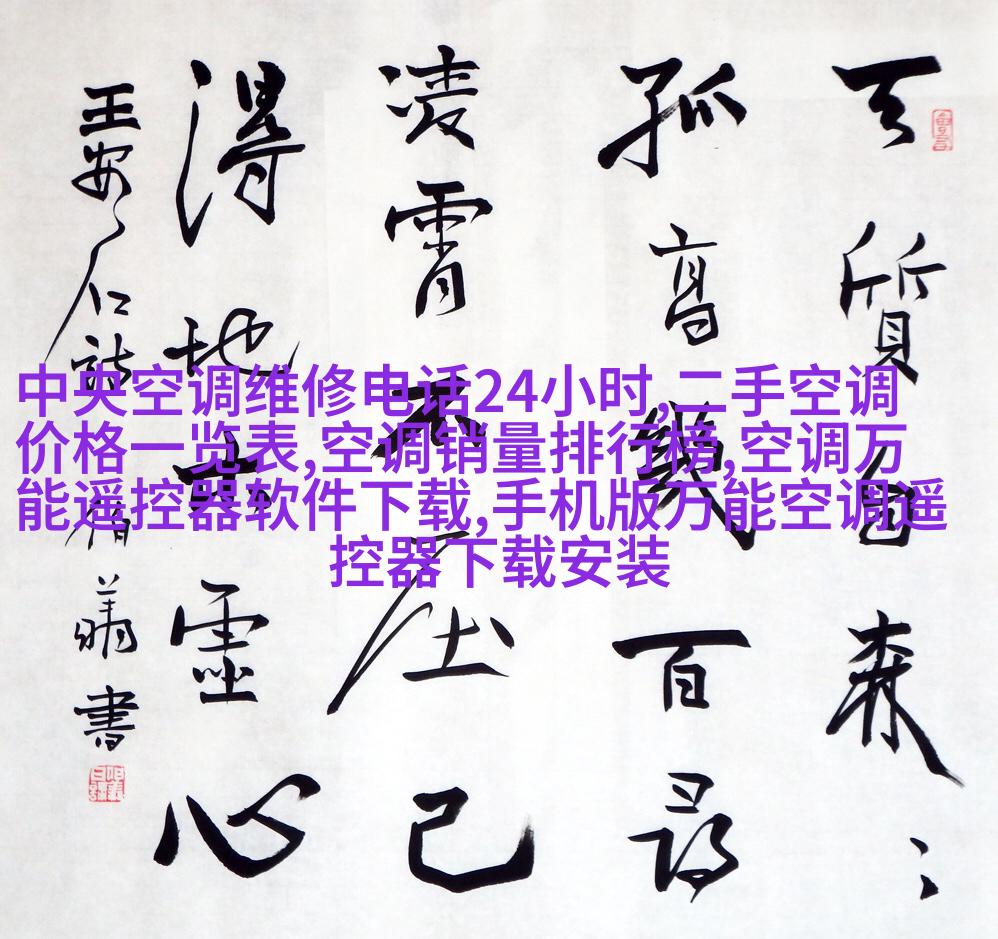 中央空调维修电话24小时,二手空调
价格一览表,空调销量排行榜,空调万
能遥控器软件下载,手机版万能空调遥
控器下载安装
天質自森〻
孤高幾百尋
凌霄不屈己
得地本虚心
王安石詩 書